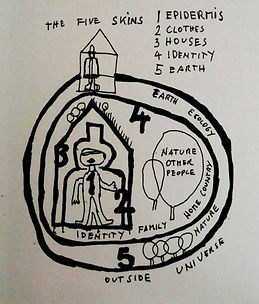 THE FIVE SKINS
1 EPIDERMIS
2 CLOTHES
3 HOUSES
4 IDENTITY
5 EARTH
EARTH ECOLOGY
4
3
NATURE
OTHER
PEOPLE
2
HOME COUNTRY
NATURE
IDENTITY FAMILY
5
UNIVERSE
OUTSIDE